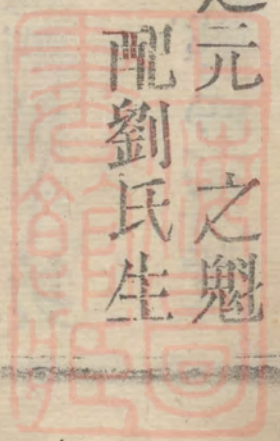 元　之魁
配劉氏生